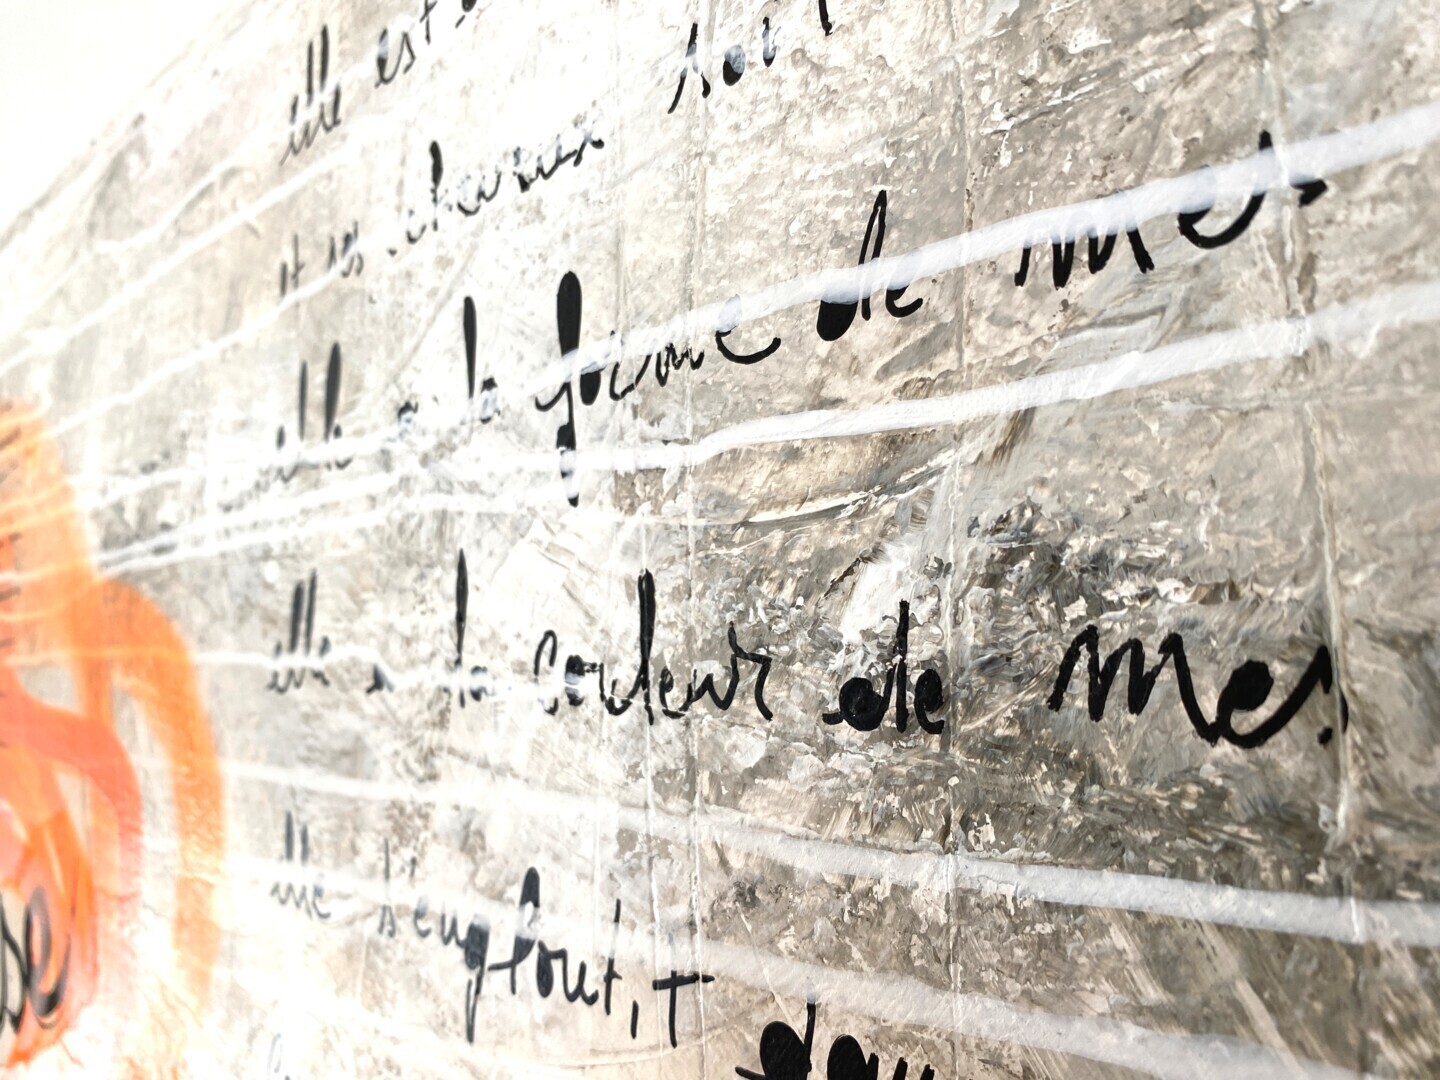 elle est
et ses cheveux sont
elle a la forme de mes
elle a la couleur de mes
elle s'engloutit
se